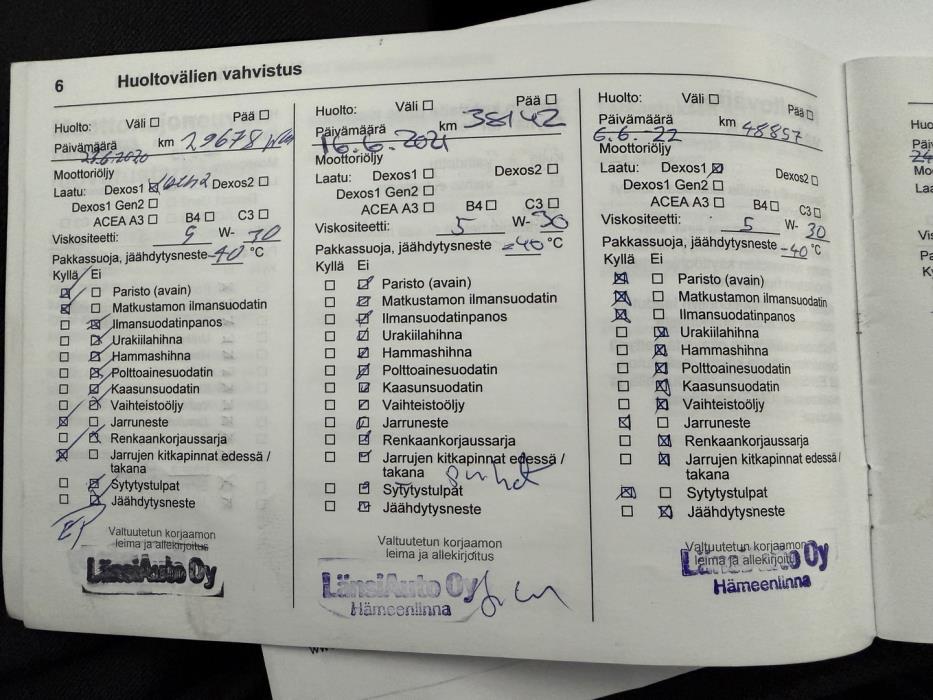 6 Huoltovälien vahvistus
Huolto: Väli ☐ Pää ☐
Päivämäärä km 29678
Moottoriöljy
Laatu: Dexos1 ☒ Dexos2 ☐
Dexos1 Gen2 ☐
ACEA A3 ☐ B4 ☐ C3 ☐
Viskositeetti: 5 W- 30
Pakkassuoja, jäähdytysneste -40 °C
Kyllä Ei
☒ ☐ Paristo (avain)
☒ ☐ Matkustamon ilmansuodatin
☐ ☒ Ilmansuodatinpanos
☐ ☒ Urakiilahihna
☐ ☒ Hammashihna
☐ ☒ Polttoainesuodatin
☐ ☒ Kaasunsuodatin
☐ ☒ Vaihteistoöljy
☒ ☐ Jarruneste
☐ ☒ Renkaankorjaussarja
☒ ☐ Jarrujen kitkapinnat edessä /
takana
☐ ☒ Sytytystulpat
☐ ☒ Jäähdytysneste
Valtuutetun korjaamon
leima ja allekirjoitus
LänsiAuto Oy
Huolto: Väli ☐ Pää ☐
Päivämäärä km 38142
16.6.2021
Moottoriöljy
Laatu: Dexos1 ☐ Dexos2 ☐
Dexos1 Gen2 ☐
ACEA A3 ☐ B4 ☐ C3 ☐
Viskositeetti: 5 W- 30
Pakkassuoja, jäähdytysneste -40 °C
Kyllä Ei
☐ ☒ Paristo (avain)
☐ ☒ Matkustamon ilmansuodatin
☐ ☒ Ilmansuodatinpanos
☐ ☒ Urakiilahihna
☐ ☒ Hammashihna
☐ ☒ Polttoainesuodatin
☐ ☒ Kaasunsuodatin
☐ ☒ Vaihteistoöljy
☐ ☒ Jarruneste
☐ ☒ Renkaankorjaussarja
☐ ☒ Jarrujen kitkapinnat edessä /
takana
☐ ☒ Sytytystulpat
☐ ☒ Jäähdytysneste
Valtuutetun korjaamon
leima ja allekirjoitus
LänsiAuto Oy
Hämeenlinna
Huolto: Väli ☐ Pää ☐
Päivämäärä km 48857
6.6.22
Moottoriöljy
Laatu: Dexos1 ☒ Dexos2 ☐
Dexos1 Gen2 ☐
ACEA A3 ☐ B4 ☐ C3 ☐
Viskositeetti: 5 W- 30
Pakkassuoja, jäähdytysneste -40 °C
Kyllä Ei
☒ ☐ Paristo (avain)
☒ ☐ Matkustamon ilmansuodatin
☒ ☐ Ilmansuodatinpanos
☐ ☒ Urakiilahihna
☐ ☒ Hammashihna
☐ ☒ Polttoainesuodatin
☐ ☒ Kaasunsuodatin
☐ ☒ Vaihteistoöljy
☒ ☐ Jarruneste
☐ ☒ Renkaankorjaussarja
☐ ☒ Jarrujen kitkapinnat edessä /
takana
☒ ☐ Sytytystulpat
☐ ☒ Jäähdytysneste
Valtuutetun korjaamon
leima ja allekirjoitus
LänsiAuto Oy
Hämeenlinna